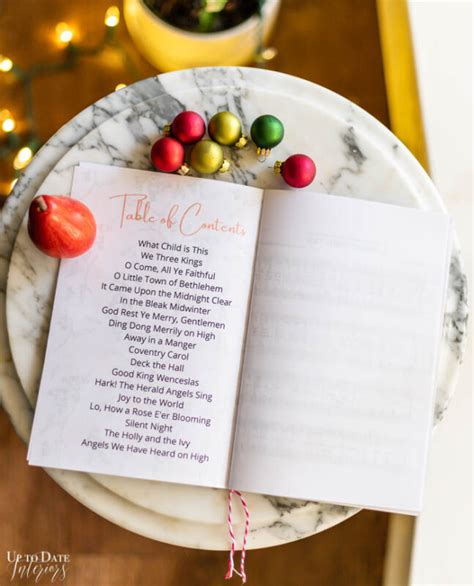 Table of Contents
What Child is This
We Three Kings
O Come, All Ye Faithful
O Little Town of Bethlehem
It Came Upon the Midnight Clear
In the Bleak Midwinter
God Rest Ye Merry, Gentlemen
Ding Dong Merrily on High
Away in a Manger
Coventry Carol
Deck the Hall
Good King Wenceslas
Hark! The Herald Angels Sing
Joy to the World
Lo, How a Rose E'er Blooming
Silent Night
The Holly and the Ivy
Angels We Have Heard on High
UP TO DATE
Interiors